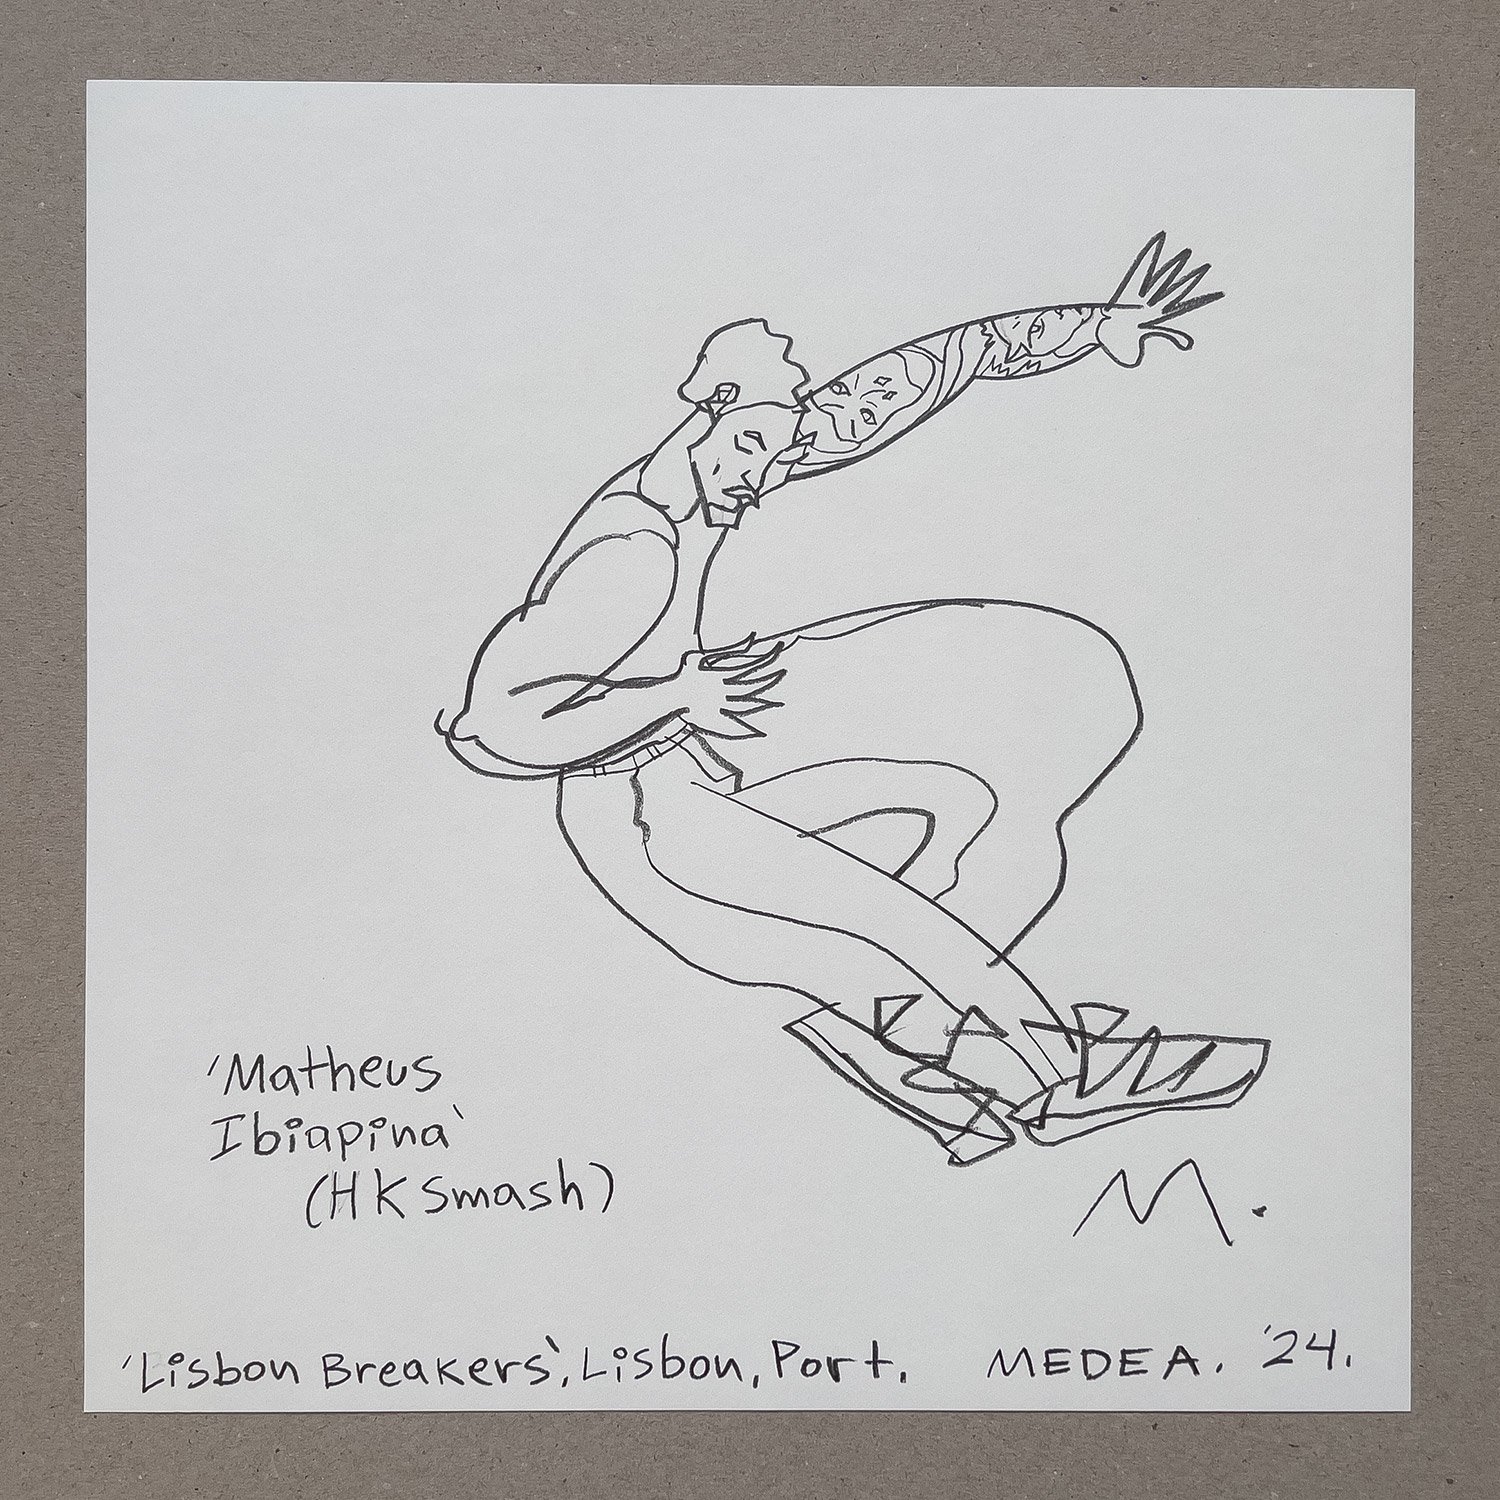 'Matheus
Ibiapina'
(HK Smash)
M.
'Lisbon Breakers', Lisbon, Port. MEDEA. '24.